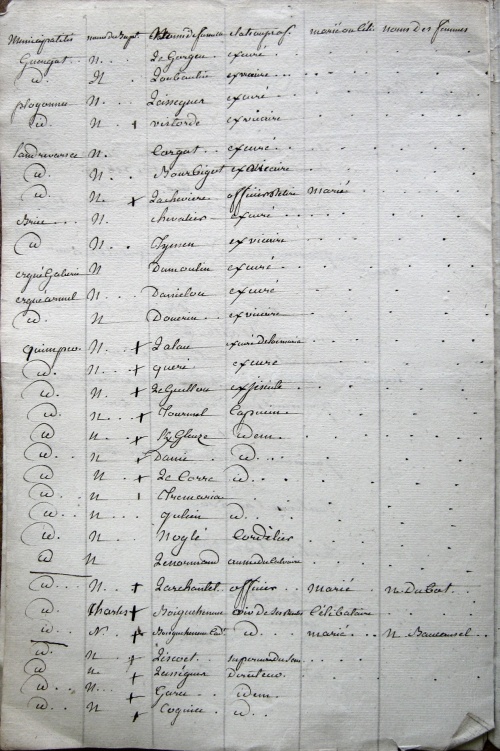 Municipalités noms de Bapt. Noms de famille état ou prof. marié ou céli. noms des femmes
Guengat n. Le Gorgeu ex curé
id N Louboutin ex vicaire
plogonnec N. Lasseguer ex curé
id N + vistorde ex vicaire
landrevarzec N. Corgat ex curé
id N. Bourbigot ex vicaire
id N. + Lachevière officier Retiré marié
Briec N. chevalier ex curé
id N. ex vicaire
ergué Gaberic N Dumoulin ex curé
ergue armel N Danielou ex curé
id. N ex vicaire
quimper N. + Lalau ex curé de la mairie
id. N. + queré ex curé
id. N + Le Guillou ex Jésuite
id. N + Tournel Capucin
id N. + idem
id N. + Danié id.
id N. + Le Corre id.
id. N Tremaria
id. N. qulien id.
id. N. Noglé Cordelier
id N Lenormand du Calvaire
id. N. + Larchantel officier marié n. Dubot
id. Charles + Boisguehenneuc Célibataire
id. N. + Boisguehenneuc Cad. id. marié N
id. N + Liscoet
id N. + Lasséguer Directeur
id. N. + idem
id. N + Coquiec id.